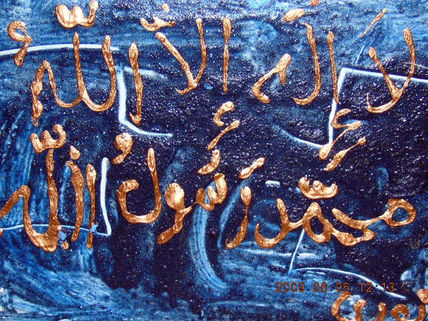 لا إله إلا الله
محمد رسول الله
2009.09.06 12:13